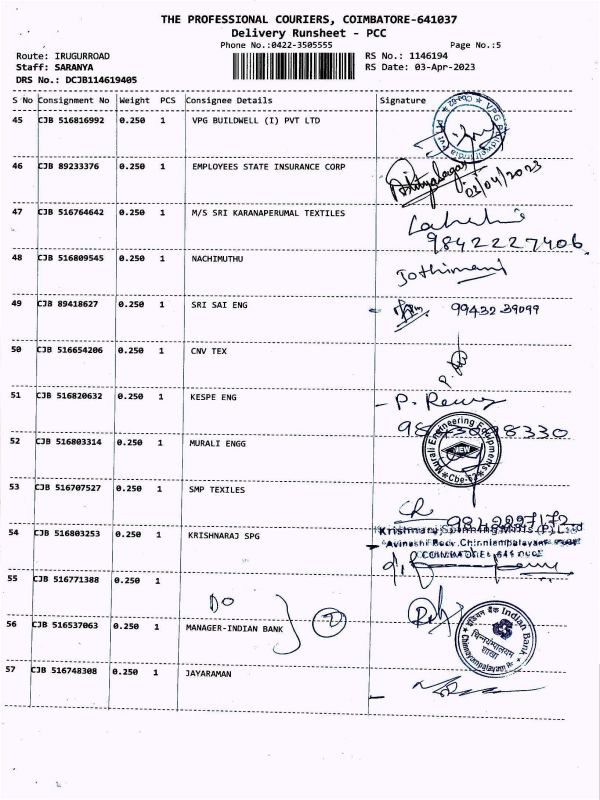 THE PROFESSIONAL COURIERS, COIMBATORE-641037
Delivery Runsheet - PCC
Phone No.:0422-3505555 Page No.:5
Route: IRUGURROAD RS No.: 1146194
Staff: SARANYA RS Date: 03-Apr-2023
DRS No.: DCJB114619405
S No Consignment No Weight PCS Consignee Details Signature
45 CJB 516816992 0.250 1 VPG BUILDWELL (I) PVT LTD
46 CJB 89233376 0.250 1 EMPLOYEES STATE INSURANCE CORP
03/04/2023
47 CJB 516764642 0.250 1 M/S SRI KARANAPERUMAL TEXTILES
9842227406
48 CJB 516809545 0.250 1 NACHIMUTHU Jothimani
49 CJB 89418627 0.250 1 SRI SAI ENG 99432 39099
50 CJB 516654206 0.250 1 CNV TEX
51 CJB 516820632 0.250 1 KESPE ENG
52 CJB 516803314 0.250 1 MURALI ENGG Murali Engineering Equipments MEW
53 CJB 516707527 0.250 1 SMP TEXTILES
54 CJB 516803253 0.250 1 KRISHNARAJ SPG Krishnaraj Spinning Mills (P) Ltd
Avinashi Road, Chinniampalayam
COIMBATORE
55 CJB 516771388 0.250 1
DO
56 CJB 516537063 0.250 1 MANAGER-INDIAN BANK 2 इंडियन बैंक Indian Bank
चिन्नयंपालयम
शाखा
Chinnayampalayam Br
57 CJB 516748308 0.250 1 JAYARAMAN